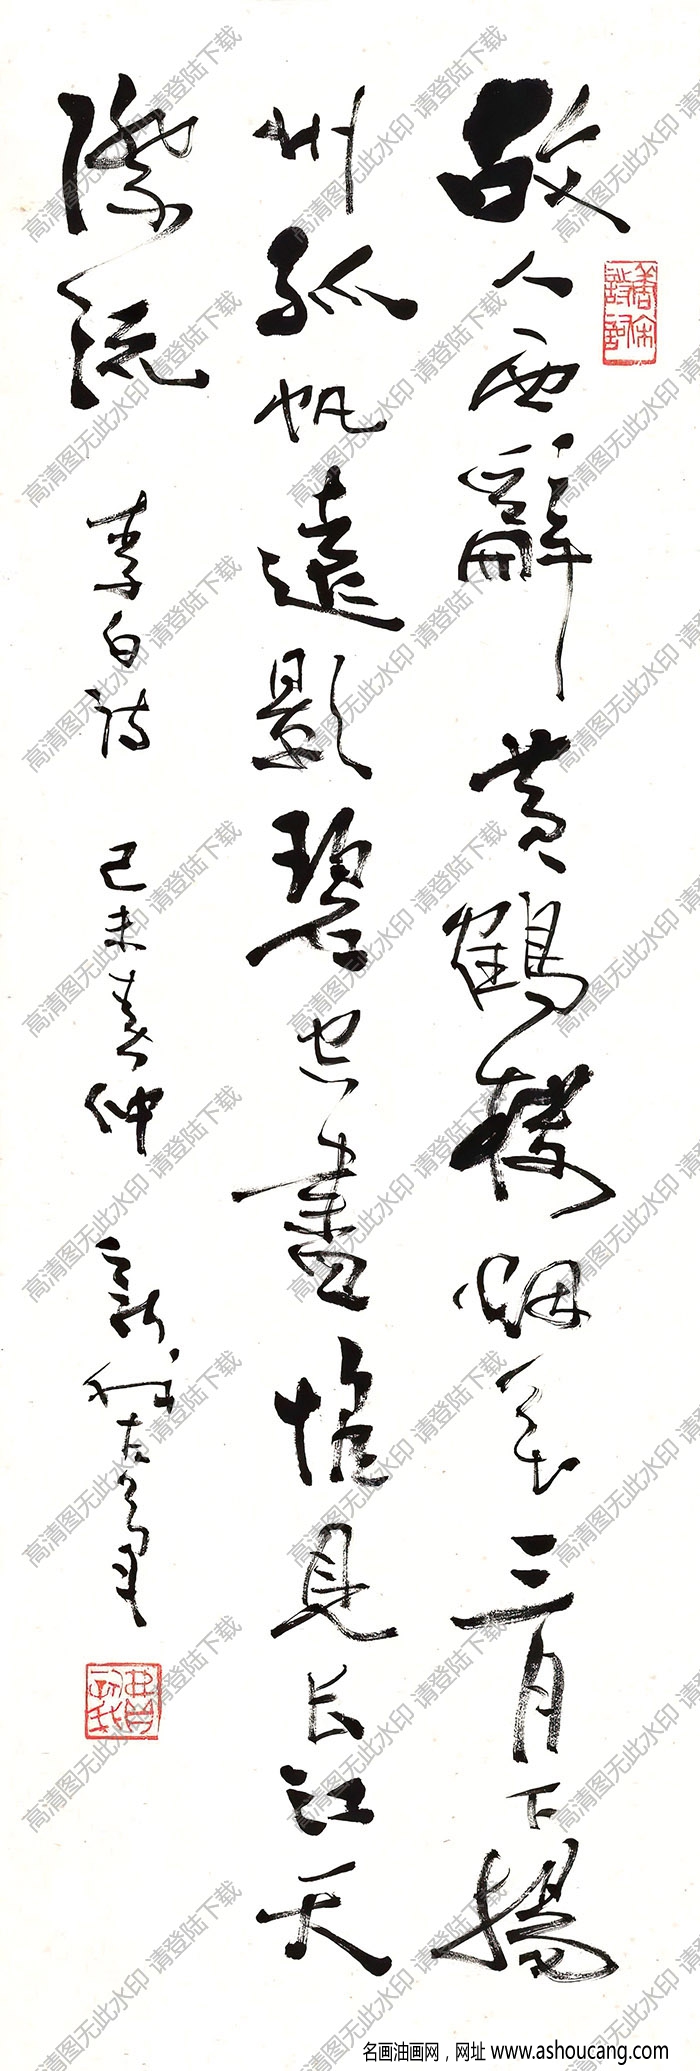 故人西辭黄鶴樓烟花三月下揚
州孤帆遠影碧空盡惟見长江天
際流 李白詩 己未春仲
高清图无此水印 请登陆下载
名画油画网，网址 www.ashoucang.com